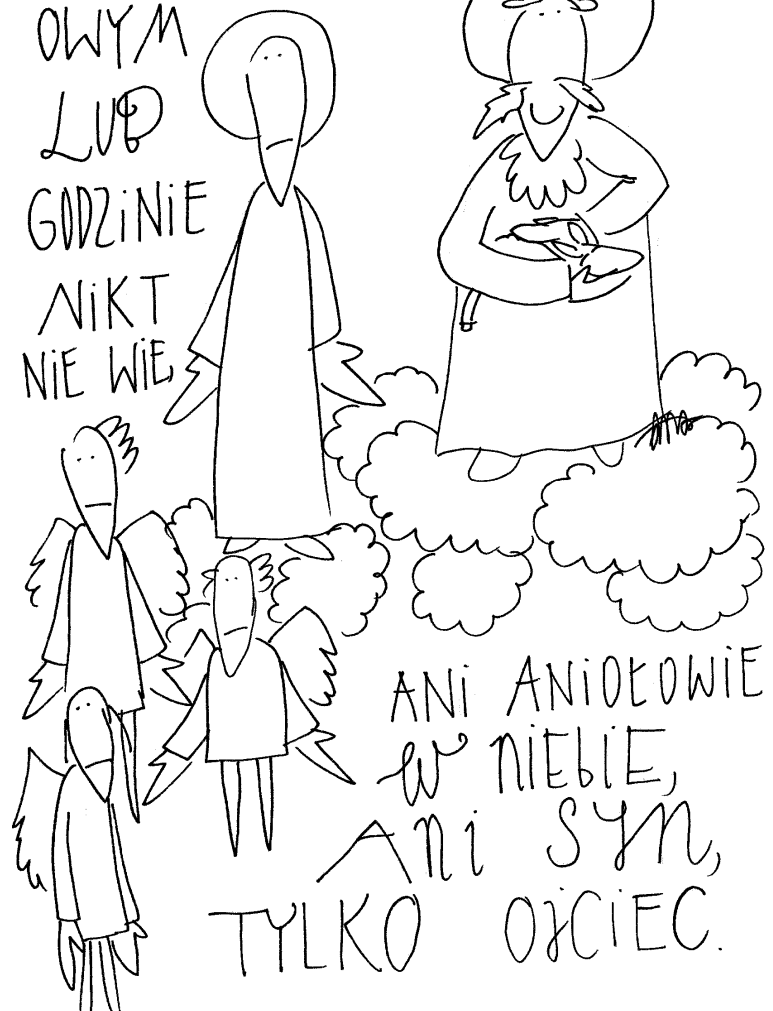 OWYM
LUB
GODZiNiE
NiKT
NiE WiE,
ANi ANiOŁOWiE
W NiEBiE,
Ani SYN,
TYLKO OjCiEC.